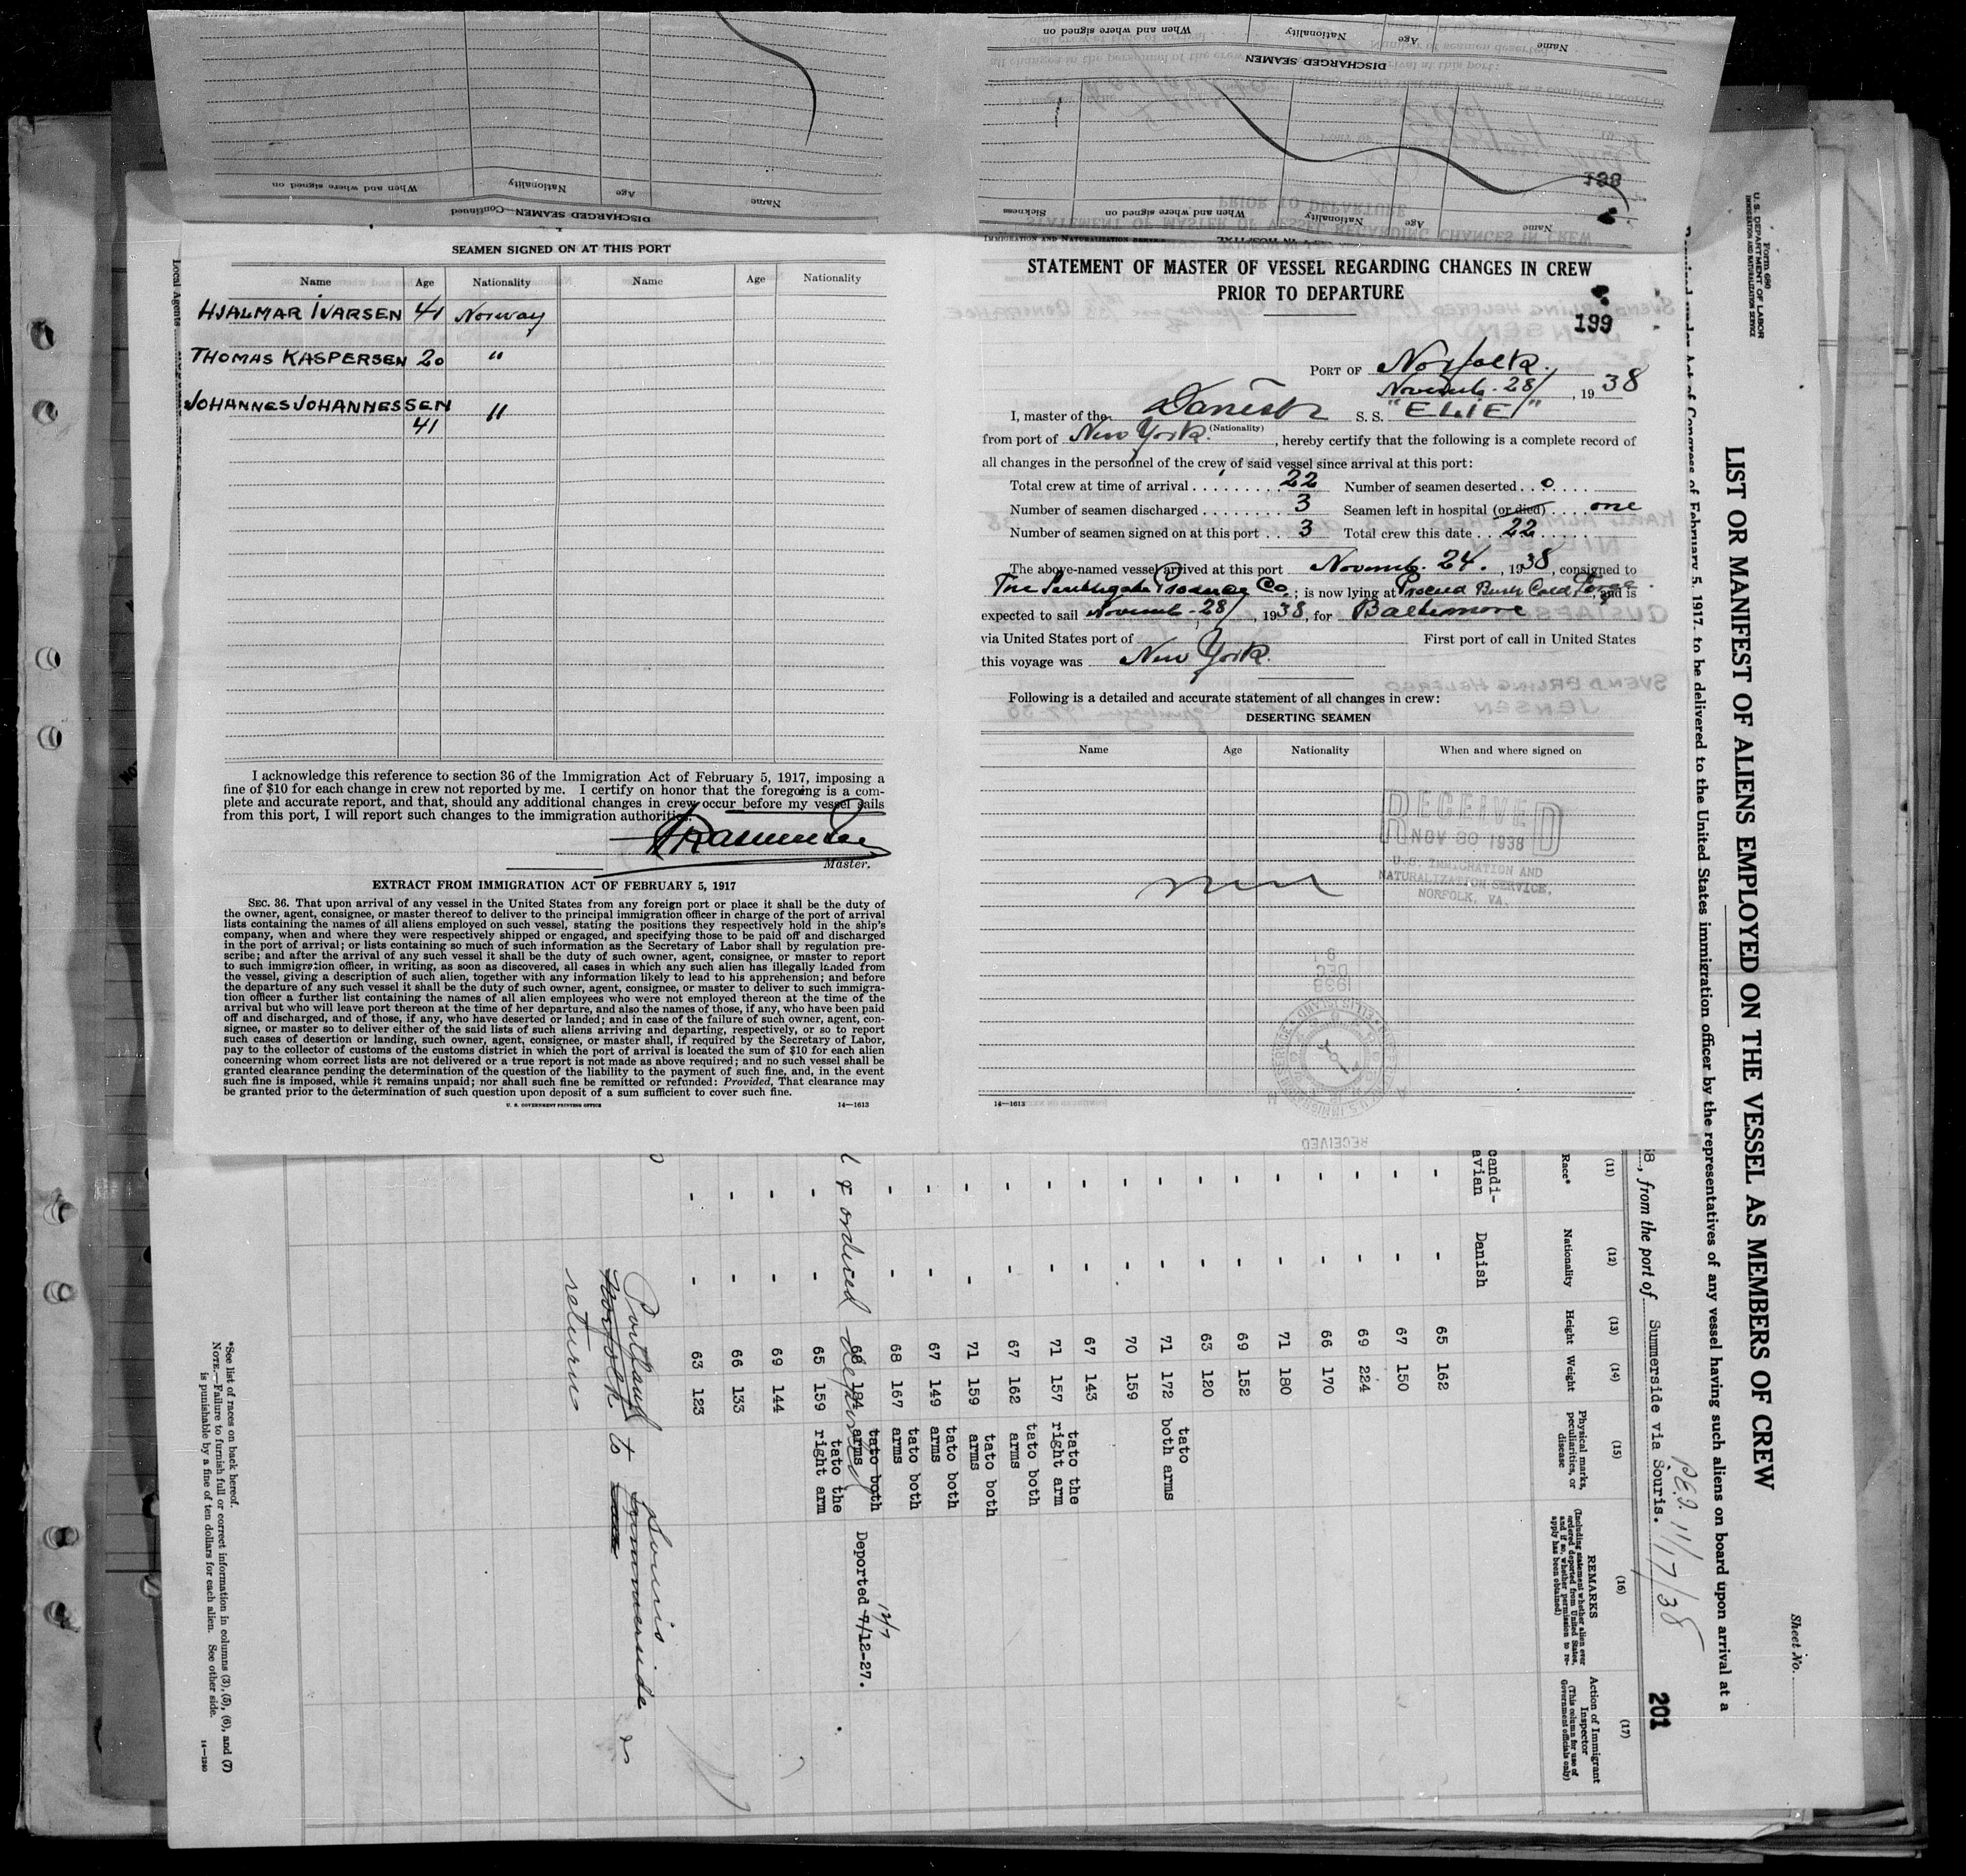 When and where signed on Nationality Age Name
DISCHARGED SEAMEN
When and where signed on Nationality Age Name
DISCHARGED SEAMEN—Continued
198
Sickness When and where signed on Nationality Age Name
SEAMEN SIGNED ON AT THIS PORT
Name Age Nationality Name Age Nationality
HJALMAR IVARSEN 41 Norway
THOMAS KASPERSEN 20 "
JOHANNES JOHANNESSEN "
41
I acknowledge this reference to section 36 of the Immigration Act of February 5, 1917, imposing a
fine of $10 for each change in crew not reported by me. I certify on honor that the foregoing is a com-
plete and accurate report, and that, should any additional changes in crew occur before my vessel sails
from this port, I will report such changes to the immigration authorities.
Master.
EXTRACT FROM IMMIGRATION ACT OF FEBRUARY 5, 1917
SEC. 36. That upon arrival of any vessel in the United States from any foreign port or place it shall be the duty of
the owner, agent, consignee, or master thereof to deliver to the principal immigration officer in charge of the port of arrival
lists containing the names of all aliens employed on such vessel, stating the positions they respectively hold in the ship's
company, when and where they were respectively shipped or engaged, and specifying those to be paid off and discharged
in the port of arrival; or lists containing so much of such information as the Secretary of Labor shall by regulation pre-
scribe; and after the arrival of any such vessel it shall be the duty of such owner, agent, consignee, or master to report
to such immigration officer, in writing, as soon as discovered, all cases in which any such alien has illegally landed from
the vessel, giving a description of such alien, together with any information likely to lead to his apprehension; and before
the departure of any such vessel it shall be the duty of such owner, agent, consignee, or master to deliver to such immigra-
tion officer a further list containing the names of all alien employees who were not employed thereon at the time of the
arrival but who will leave port thereon at the time of her departure, and also the names of those, if any, who have been paid
off and discharged, and of those, if any, who have deserted or landed; and in case of the failure of such owner, agent, con-
signee, or master so to deliver either of the said lists of such aliens arriving and departing, respectively, or so to report
such cases of desertion or landing, such owner, agent, consignee, or master shall, if required by the Secretary of Labor,
pay to the collector of customs of the customs district in which the port of arrival is located the sum of $10 for each alien
concerning whom correct lists are not delivered or a true report is not made as above required; and no such vessel shall be
granted clearance pending the determination of the question of the liability to the payment of such fine, and, in the event
such fine is imposed, while it remains unpaid; nor shall such fine be remitted or refunded: Provided, That clearance may
be granted prior to the determination of such question upon deposit of a sum sufficient to cover such fine.
U. S. GOVERNMENT PRINTING OFFICE 14—1613
Local Agents
STATEMENT OF MASTER OF VESSEL REGARDING CHANGES IN CREW
PRIOR TO DEPARTURE
199
PORT OF Norfolk.
Novemb. 28/, 1938
I, master of the Danish S. S. "ELIE"
from port of New York. (Nationality), hereby certify that the following is a complete record of
all changes in the personnel of the crew of said vessel since arrival at this port:
Total crew at time of arrival 22 Number of seamen deserted 0
Number of seamen discharged 3 Seamen left in hospital (or died) one
Number of seamen signed on at this port 3 Total crew this date 22
The above-named vessel arrived at this port Novemb. 24., 1938, consigned to
The Southgate Produce Co.; is now lying at , and is
expected to sail Novemb. 28/, 1938, for Baltimore
via United States port of First port of call in United States
this voyage was New York.
Following is a detailed and accurate statement of all changes in crew:
DESERTING SEAMEN
Name Age Nationality When and where signed on
RECEIVED
NOV 30 1938
U.S. IMMIGRATION AND
NATURALIZATION SERVICE,
NORFOLK, VA.
14—1613
RECEIVED
Form 680
U. S. DEPARTMENT OF LABOR
IMMIGRATION AND NATURALIZATION SERVICE
Sheet No.
LIST OR MANIFEST OF ALIENS EMPLOYED ON THE VESSEL AS MEMBERS OF CREW
Act of Congress of February 5, 1917, to be delivered to the United States immigration officer by the representatives of any vessel having such aliens on board upon arrival at a
P.E.I. 11/17/38
38, from the port of Summerside via Souris.
201
(11) (12) (13) (14) (15) (16) (17)
Race* Nationality Height Weight Physical marks, peculiarities, or disease REMARKS (Including statement whether alien ever ordered deported from United States, and if so, whether permission to reapply has been obtained) Action of Immigrant Inspector (This column for use of Government officials only)
candi-
avian Danish
- - 65 162
- - 67 150
- - 69 224
- - 66 170
- - 71 180
- - 69 152
- - 63 120
- - 71 172 tato both arms
- - 70 159
- - 67 143
- - 71 157 tato the right arm
- - 67 162 tato both arms
- - 71 159 tato both arms
- - 67 149 tato both arms
- - 68 167 tato both arms
68 184 tato both arms Deported 7/12-27.
12/7
- - 65 159 tato the right arm
- - 69 144
- - 66 133
- - 63 123
Portland Souris
Norfolk to Summerside
return
*See list of races on back hereof.
NOTE.—Failure to furnish full or correct information in columns (3), (5), (6), and (7)
is punishable by a fine of ten dollars for each alien. See other side.
14—1240